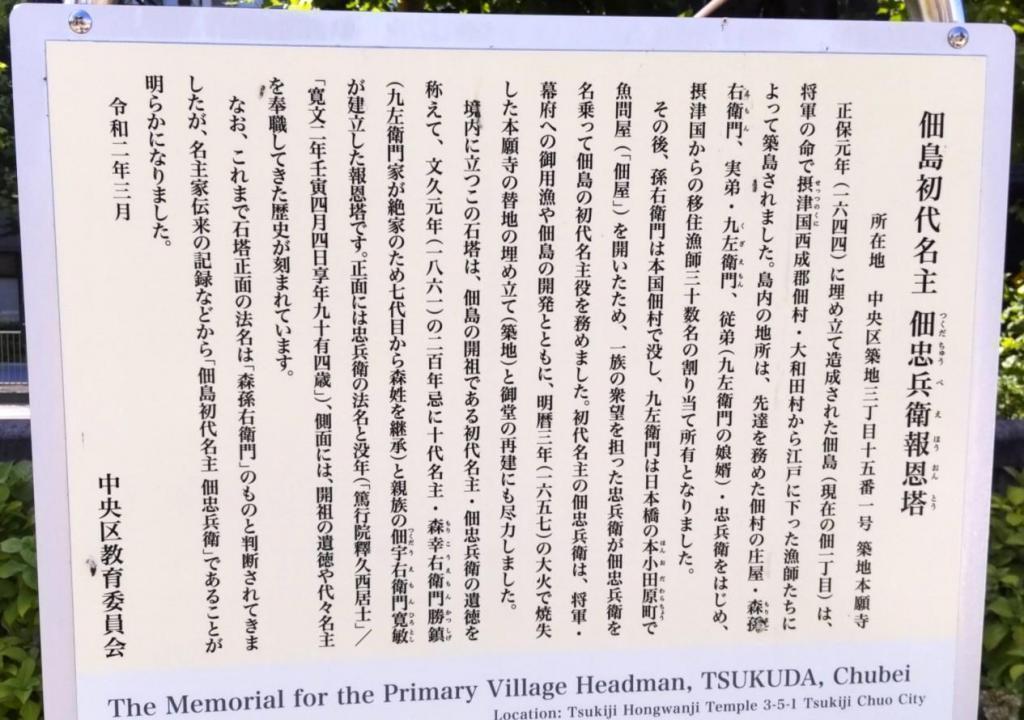 佃島初代名主 佃忠兵衛報恩塔
所在地 中央区築地三丁目十五番一号 築地本願寺
正保元年（一六四四）に埋め立て造成された佃島（現在の佃一丁目）は、
将軍の命で摂津国西成郡佃村・大和田村から江戸に下った漁師たちに
よって築島されました。島内の地所は、先達を務めた佃村の庄屋・森孫
右衛門、実弟・九左衛門、従弟（九左衛門の娘婿）・忠兵衛をはじめ、
摂津国からの移住漁師三十数名の割り当て所有となりました。
その後、孫右衛門は本国佃村で没し、九左衛門は日本橋の本小田原町で
魚問屋（「佃屋」）を開いたため、一族の衆望を担った忠兵衛が佃忠兵衛を
名乗って佃島の初代名主役を務めました。初代名主の佃忠兵衛は、将軍・
幕府への御用漁や佃島の開発とともに、明暦三年（一六五七）の大火で焼失
した本願寺の替地の埋め立て（築地）と御堂の再建にも尽力しました。
境内に立つこの石塔は、佃島の開祖である初代名主・佃忠兵衛の遺徳を
称えて、文久元年（一八六一）の二百年忌に十代名主・森幸右衛門勝鎮
（九左衛門家が絶家のため七代目から森姓を継承）と親族の佃宇右衛門寛敏
が建立した報恩塔です。正面には忠兵衛の法名と没年（「篤行院釋久西居士」／
「寛文二年壬寅四月四日享年九十有四歳」）、側面には、開祖の遺徳や代々名主
を奉職してきた歴史が刻まれています。
なお、これまで石塔正面の法名は「森孫右衛門」のものと判断されてきま
したが、名主家伝来の記録などから「佃島初代名主 佃忠兵衛」であることが
明らかになりました。
令和二年三月
中央区教育委員会
The Memorial for the Primary Village Headman, TSUKUDA, Chubei
Location: Tsukiji Hongwanji Temple 3-5-1 Tsukiji Chuo City